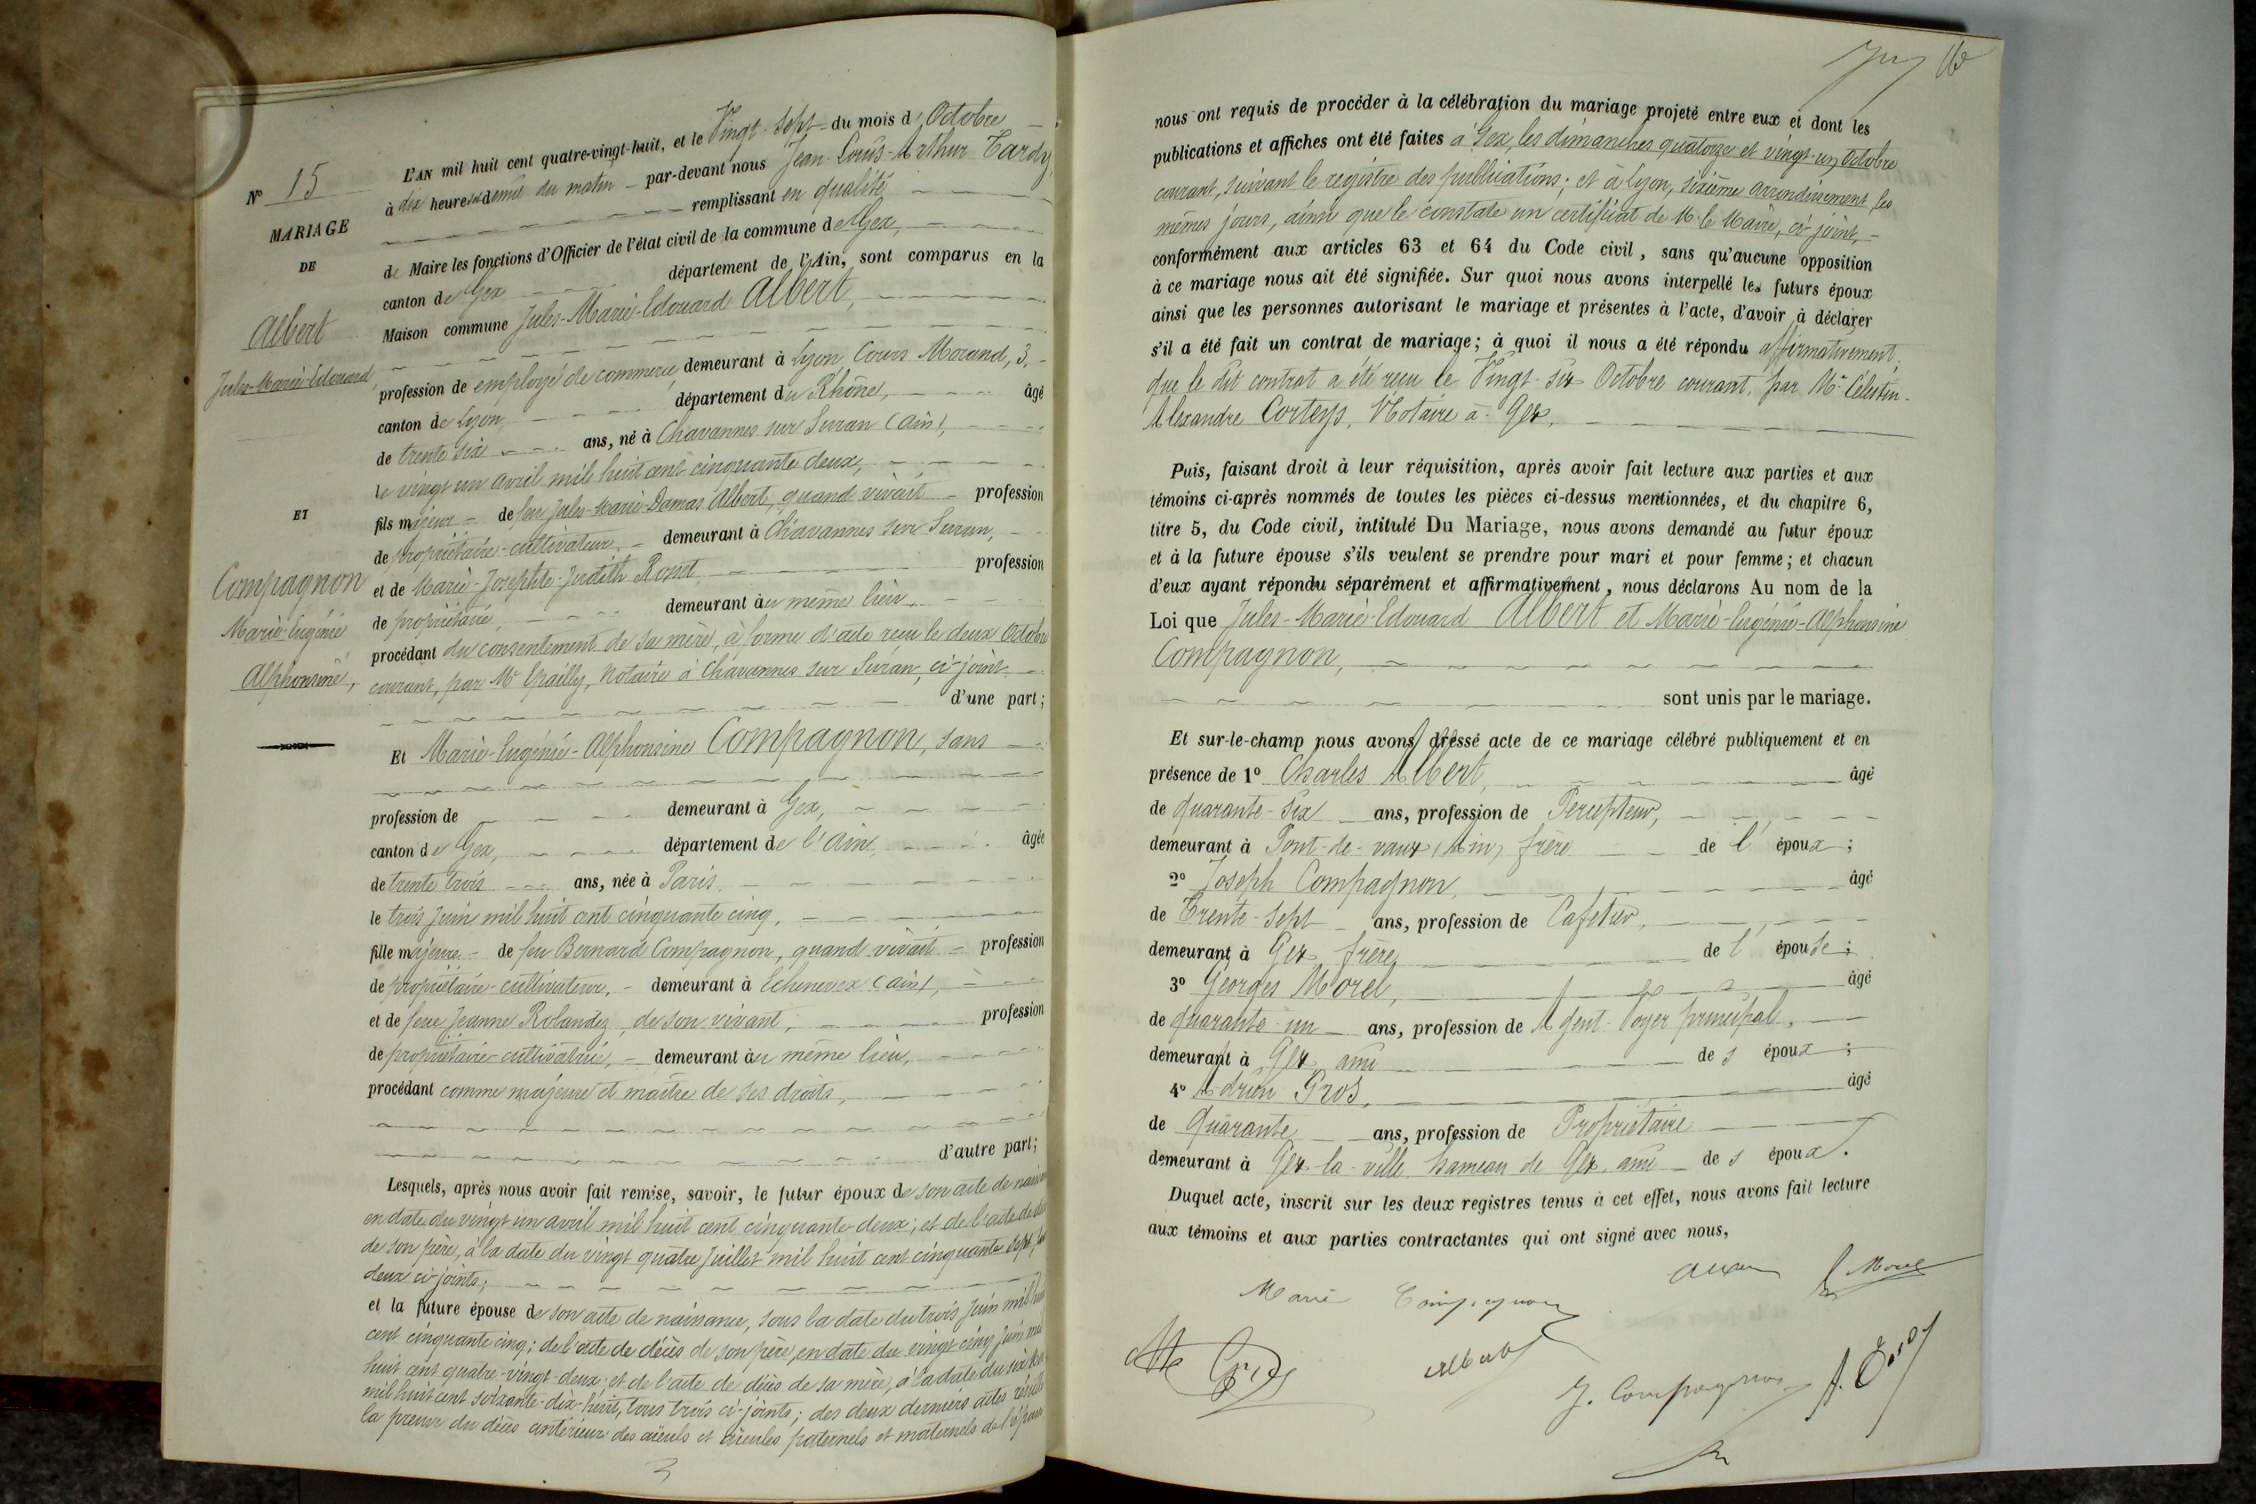 N° 15
MARIAGE
DE
Albert
Jules-Marie-Edouard,
ET
Compagnon
Marie-Eugénie
Alphonsine,
L'AN mil huit cent quatre-vingt-huit, et le Vingt-Sept du mois d'Octobre
à dix heures et demie du matin par-devant nous Jean-Louis-Arthur Tardy,
remplissant en qualité
de Maire les fonctions d'Officier de l'état civil de la commune de Gex,
canton de Gex département de l'Ain, sont comparus en la
Maison commune Jules-Marie-Edouard Albert,
profession de employé de commerce, demeurant à Lyon Cours Morand, 3,
canton de Lyon, département du Rhône, âgé
de trente six ans, né à Chavannes sur Suran (Ain),
le vingt un avril mil huit cent cinquante deux,
fils majeur de feu Jules-Marie-Damas Albert, quand vivait profession
de propriétaire-cultivateur, demeurant à Chavannes sur Suran,
et de Marie-Josephte-Judith profession
de propriétaire, demeurant au même lieu,
procédant du consentement de sa mère, à forme d'acte reçu le deux Octobre
courant, par Me notaire à Chavannes sur Suran, ci-joint
d'une part;
Et Marie-Eugénie-Alphonsine Compagnon, sans
profession de demeurant à Gex,
canton de Gex, département de l'Ain, âgée
de trente trois ans, née à Paris,
le trois Juin mil huit cent cinquante cinq,
fille majeure de feu Bernard Compagnon, quand vivait profession
de propriétaire-cultivateur, demeurant à Echenevex (Ain),
et de feue Jeanne Rolandez, de son vivant, profession
de propriétaire-cultivatrice, demeurant au même lieu,
procédant comme majeure et maître de ses droits,
d'autre part;
Lesquels, après nous avoir fait remise, savoir, le futur époux de son acte de
en date du vingt un avril mil huit cent cinquante deux; et de l'acte de
de son père, à la date du vingt quatre Juillet mil huit cent cinquante sept,
deux ci-joints;
et la future épouse de son acte de naissance, sous la date du trois Juin mil
cent cinquante cinq; de l'acte de décès de son père, en date du vingt cinq Juin mil
huit cent quatre-vingt-deux; et de l'acte de décès de sa mère, à la date du six
mil huit cent soixante-dix-huit, tous trois ci-joints; des deux derniers actes
la preuve du décès antérieur des aïeuls et aïeules paternels et maternels de
nous ont requis de procéder à la célébration du mariage projeté entre eux et dont les
publications et affiches ont été faites à Gex, les dimanches quatorze et vingt-un Octobre
courant, suivant le registre des publications; et à Lyon, sixième arrondissement, les
mêmes jours, ainsi que le constate un certificat de M. le Maire, ci-joint,
conformément aux articles 63 et 64 du Code civil, sans qu'aucune opposition
à ce mariage nous ait été signifiée. Sur quoi nous avons interpellé les futurs époux
ainsi que les personnes autorisant le mariage et présentes à l'acte, d'avoir à déclarer
s'il a été fait un contrat de mariage; à quoi il nous a été répondu affirmativement,
que le dit contrat a été reçu le Vingt-six Octobre courant, par Me Célestin-
Alexandre Corteys, Notaire à Gex,
Puis, faisant droit à leur réquisition, après avoir fait lecture aux parties et aux
témoins ci-après nommés de toutes les pièces ci-dessus mentionnées, et du chapitre 6,
titre 5, du Code civil, intitulé Du Mariage, nous avons demandé au futur époux
et à la future épouse s'ils veulent se prendre pour mari et pour femme; et chacun
d'eux ayant répondu séparément et affirmativement, nous déclarons Au nom de la
Loi que Jules-Marie-Edouard Albert et Marie-Eugénie-Alphonsine
Compagnon,
sont unis par le mariage.
Et sur-le-champ nous avons dressé acte de ce mariage célébré publiquement et en
présence de 1° Charles Albert, âgé
de quarante-six ans, profession de Percepteur,
demeurant à Pont-de-vaux (Ain) frère de l'époux;
2° Joseph Compagnon, âgé
de Trente-sept ans, profession de Cafetier,
demeurant à Gex frère de l'épouse;
3° Georges Morel, âgé
de quarante-un ans, profession de Agent-Voyer principal,
demeurant à Gex ami des époux;
4° Adrien Gros, âgé
de Quarante ans, profession de Propriétaire
demeurant à Gex-la-ville hameau de Gex, ami des époux.
Duquel acte, inscrit sur les deux registres tenus à cet effet, nous avons fait lecture
aux témoins et aux parties contractantes qui ont signé avec nous,
Marie Compagnon
Morel
Albert
J. Compagnon